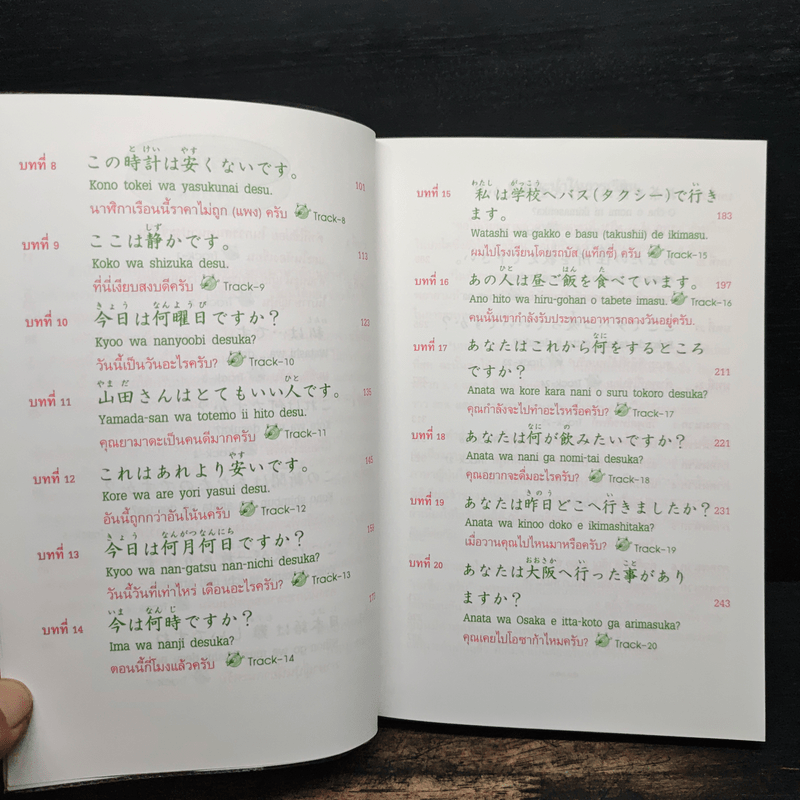 บทที่ 8 この時計は安くないです。
Kono tokei wa yasukunai desu. 101
นาฬิกาเรือนนี้ราคาไม่ถูก (แพง) ครับ Track-8
บทที่ 9 ここは静かです。
Koko wa shizuka desu. 113
ที่นี่เงียบสงบดีครับ Track-9
บทที่ 10 今日は何曜日ですか?
Kyoo wa nanyoobi desuka?
วันนี้เป็นวันอะไรครับ? Track-10
บทที่ 11 山田さんはとてもいい人です。
Yamada-san wa totemo ii hito desu.
คุณยามาดะเป็นคนดีมากครับ Track-11
บทที่ 12 これはあれより安いです。
Kore wa are yori yasui desu.
อันนี้ถูกกว่าอันโน้นครับ Track-12
บทที่ 13 今日は何月何日ですか?
Kyoo wa nan-gatsu nan-nichi desuka?
วันนี้วันที่เท่าไหร่ เดือนอะไรครับ? Track-13
บทที่ 14 今は何時ですか?
Ima wa nanji desuka?
ตอนนี้กี่โมงแล้วครับ Track-14
บทที่ 15 私は学校へバス(タクシー)で行き
ます。 183
Watashi wa gakko e basu (takushii) de ikimasu.
ผมไปโรงเรียนโดยรถบัส (แท็กซี่) ครับ Track-15
บทที่ 16 あの人は昼ご飯を食べています。 197
Ano hito wa hiru-gohan o tabete imasu. Track-16
คนนั้นเขากำลังรับประทานอาหารกลางวันอยู่ครับ.
บทที่ 17 あなたはこれから何をするところ
ですか? 211
Anata wa kore kara nani o suru tokoro desuka?
คุณกำลังจะไปทำอะไรหรือครับ? Track-17
บทที่ 18 あなたは何が飲みたいですか? 221
Anata wa nani ga nomi-tai desuka?
คุณอยากจะดื่มอะไรครับ? Track-18
บทที่ 19 あなたは昨日どこへ行きましたか? 231
Anata wa kinoo doko e ikimashitaka?
เมื่อวานคุณไปไหนมาหรือครับ? Track-19
บทที่ 20 あなたは大阪へ行った事があり
ますか? 243
Anata wa Osaka e itta-koto ga arimasuka?
คุณเคยไปโอซาก้าไหมครับ? Track-20